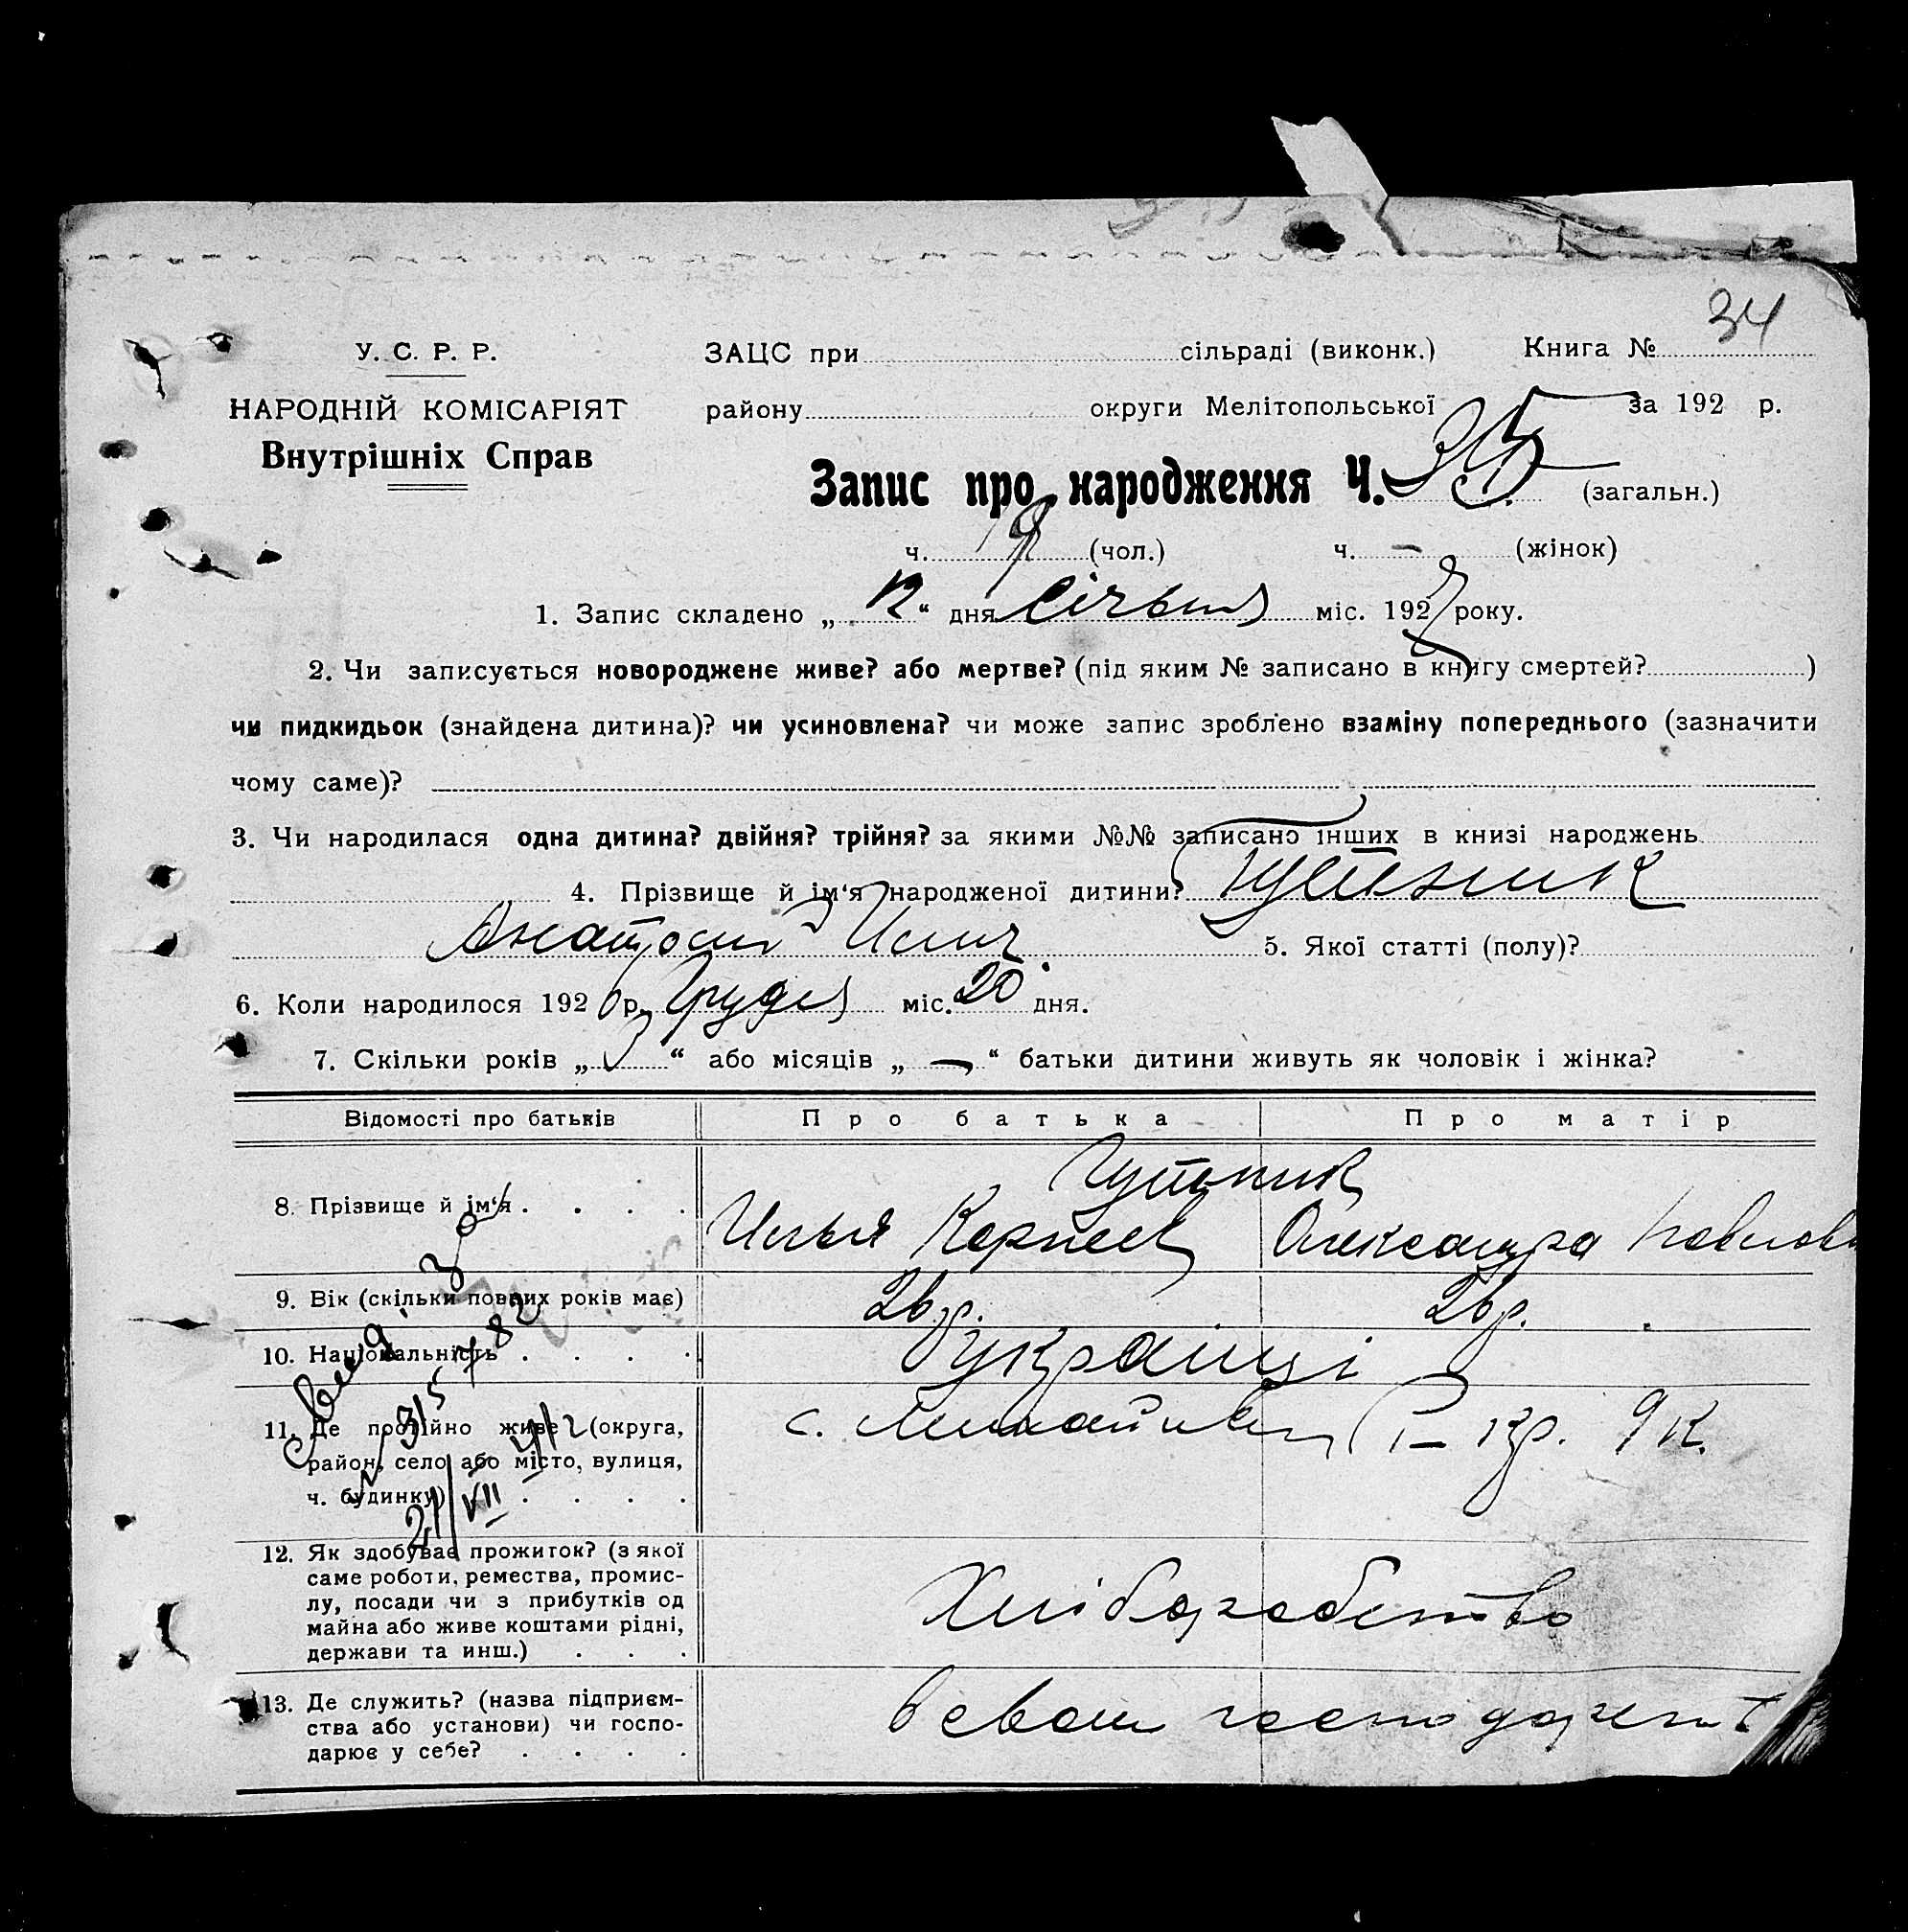 34
У. С. Р. Р.
НАРОДНІЙ КОМІСАРІЯТ
Внутрішніх Справ
ЗАЦС при сільраді (виконк.) Книга №
району округи Мелітопольської за 192 р.
Запис про народження Ч. 35 (загальн.)
ч. 19 (чол.) ч. – (жінок)
1. Запис складено „ 12 “ дня Січня міс. 1927 року.
2. Чи записується новороджене живе? або мертве? (під яким № записано в книгу смертей? )
чи пидкидьок (знайдена дитина)? чи усиновлена? чи може запис зроблено взаміну попереднього (зазначити
чому саме)?
3. Чи народилася одна дитина? двійня? трійня? за якими №№ записано інших в книзі народжень
4. Прізвище й ім‘я народженої дитини?
Анатолий Ильич 5. Якої статті (полу)?
6. Коли народилося 1926 р. Грудня міс. 20 дня.
7. Скільки років „ 3 “ або місяців „ – “ батьки дитини живуть як чоловік і жінка?
Відомості про батьків Про батька Про матір
8. Прізвище й ім‘я . . . . Илья Корнеев Олександра Павлов
9. Вік (скільки повних років має) 26 р. 26 р.
10. Національність . . . . українці
11. Де постійно живе (округа,
район, село або місто, вулиця,
ч. будинку) . . . .
с. Михайлівка I кр. 9 к.
12. Як здобуває прожиток? (з якої
саме роботи, ремества, промис-
лу, посади чи з прибутків од
майна або живе коштами рідні,
держави та инш.) . . .
Хліборобство
13. Де служить? (назва підприєм-
ства або установи) чи госпо-
дарює у себе? . . . .
в свом господарст
21/VII